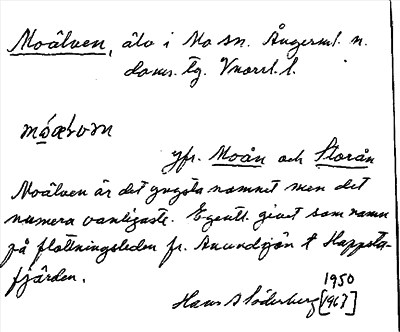 Moälven, älv i Mo sn. Ångerml. n.
doms. tg. Vnorrl. l.
mo̱ælvən
Jfr. Moån och Storån
Moälven är det yngsta namnet men det
numera vanligaste. Egentl. givet som namn
på flottningsleden fr. Anundsjön t Happsta-
fjärden.
1950
Hans Söderberg [1967]